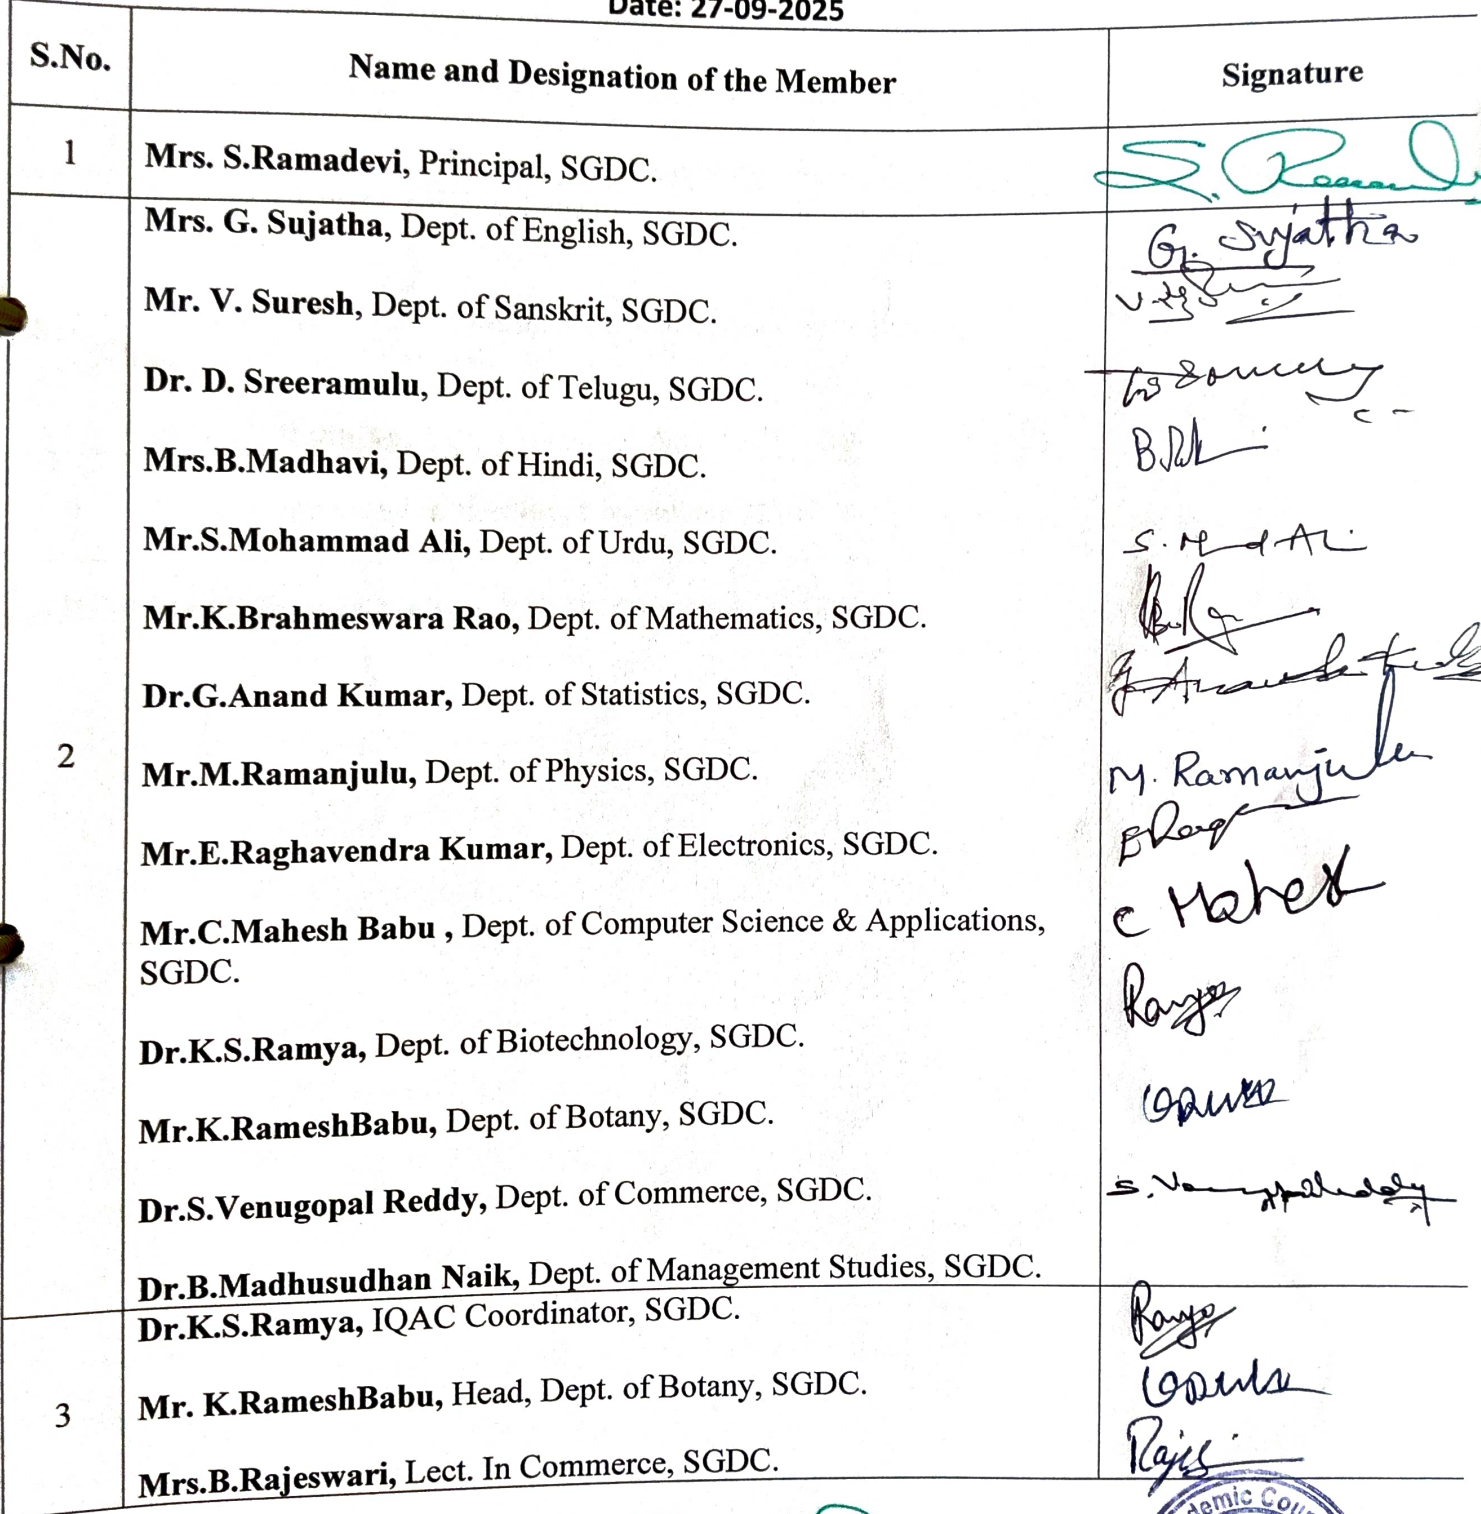 Date: 27-09-2025
S.No. Name and Designation of the Member Signature
1 Mrs. S.Ramadevi, Principal, SGDC. S. Ramadevi
Mrs. G. Sujatha, Dept. of English, SGDC. G. Sujatha
Mr. V. Suresh, Dept. of Sanskrit, SGDC.
Dr. D. Sreeramulu, Dept. of Telugu, SGDC.
Mrs.B.Madhavi, Dept. of Hindi, SGDC.
Mr.S.Mohammad Ali, Dept. of Urdu, SGDC. S. Mmd Ali
Mr.K.Brahmeswara Rao, Dept. of Mathematics, SGDC.
Dr.G.Anand Kumar, Dept. of Statistics, SGDC.
2 Mr.M.Ramanjulu, Dept. of Physics, SGDC. M. Ramanjulu
Mr.E.Raghavendra Kumar, Dept. of Electronics, SGDC.
Mr.C.Mahesh Babu , Dept. of Computer Science & Applications, C Mahesh
SGDC.
Dr.K.S.Ramya, Dept. of Biotechnology, SGDC. Ramya
Mr.K.RameshBabu, Dept. of Botany, SGDC.
Dr.S.Venugopal Reddy, Dept. of Commerce, SGDC. S. Venugopal Reddy
Dr.B.Madhusudhan Naik, Dept. of Management Studies, SGDC.
Dr.K.S.Ramya, IQAC Coordinator, SGDC. Ramya
3 Mr. K.RameshBabu, Head, Dept. of Botany, SGDC.
Mrs.B.Rajeswari, Lect. In Commerce, SGDC.